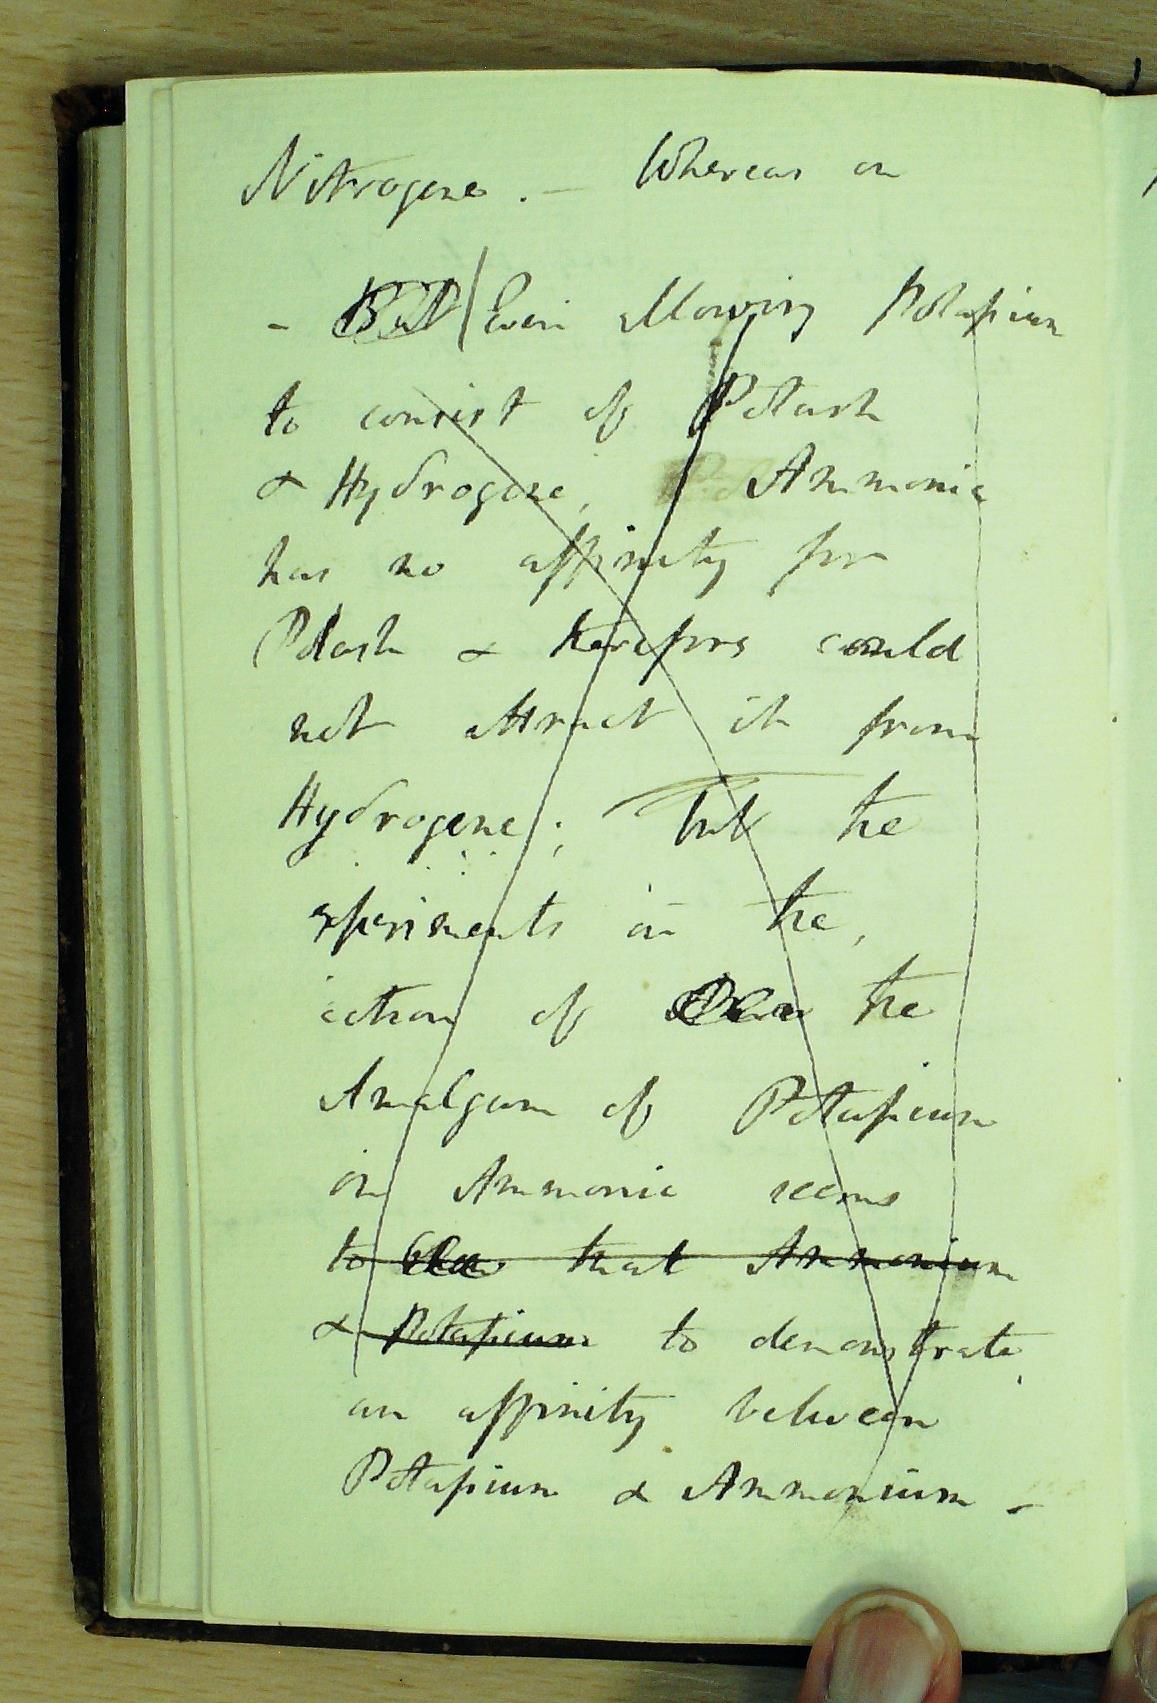 Nitrogene. – Whereas on
– But / Even allowing Potaſium
to consist of Potash
& Hydrogene, Ammonia
has no affinity for
Potash & therefore could
not attract it from
Hydrogene; but the
experiments on the,
action of the
Amalgam of Potaſium
on Ammonia seems
to that Ammonium
& Potaſium to demonstrate
an affinity between
Potaſium & Ammonium –